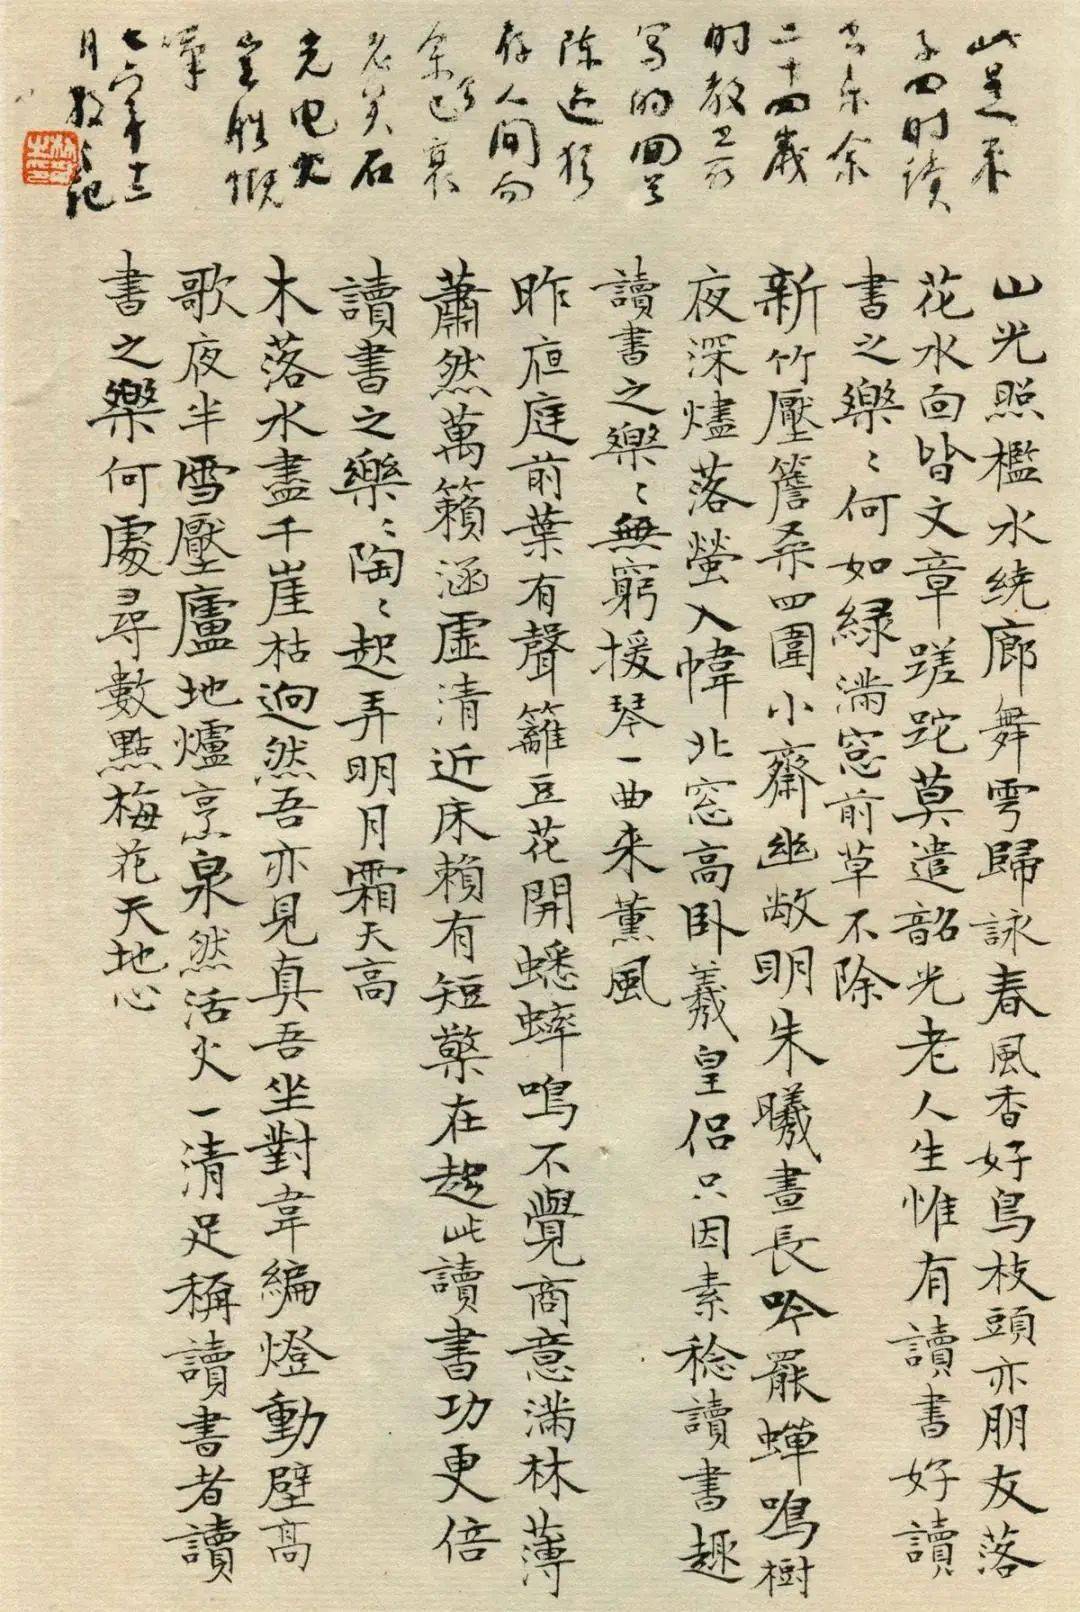 此是朱
子四时读
书乐余
二十四歲
时教
写的回首
陈迹犹
存人间而
余已衰
老矣石
光电火
岂勝慨
七六年十二
月散之记
山光照檻水绕廊舞雩歸詠春風香好鳥枝頭亦朋友落
花水面皆文章蹉跎莫遣韶光老人生惟有讀書好讀
書之樂〻何如緑滿窓前草不除
新竹壓簷桑四圍小齋幽敞明朱曦晝長吟罷蟬鳴樹
夜深燼落螢入幃北窓高卧羲皇侣只因素稔讀書趣
讀書之樂〻無窮援琴一曲来薰風
昨夜庭前葉有聲籬豆花開蟋蟀鳴不覺商意滿林薄
蕭然萬籟涵虚清近床賴有短檠在趁此讀書功更倍
讀書之樂〻陶〻起弄明月霜天高
木落水盡千崖枯迥然吾亦見真吾坐對韋編燈動壁高
歌夜半雪壓廬地爐烹泉然活火一清足稱讀書者讀
書之樂何處尋數點梅花天地心